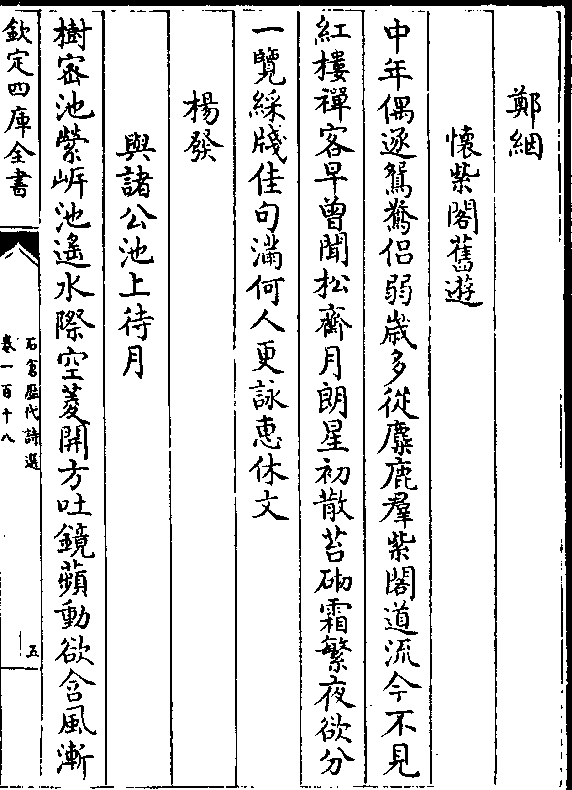 鄭絪
懷紫閣舊遊
中年偶逐鴛鸞侣弱歲多從麋鹿羣紫閣道流今不見
紅樓禪客早曾聞松齋月朗星初散苔砌霜繁夜欲分
一覽綵牋佳句滿何人更詠惠休文
楊發
與諸公池上待月
樹宻池縈岍池遙水際空菱開方吐鏡蘋動欲含風漸
欽定四庫全書
石倉歷代詩選
卷一百十八
五